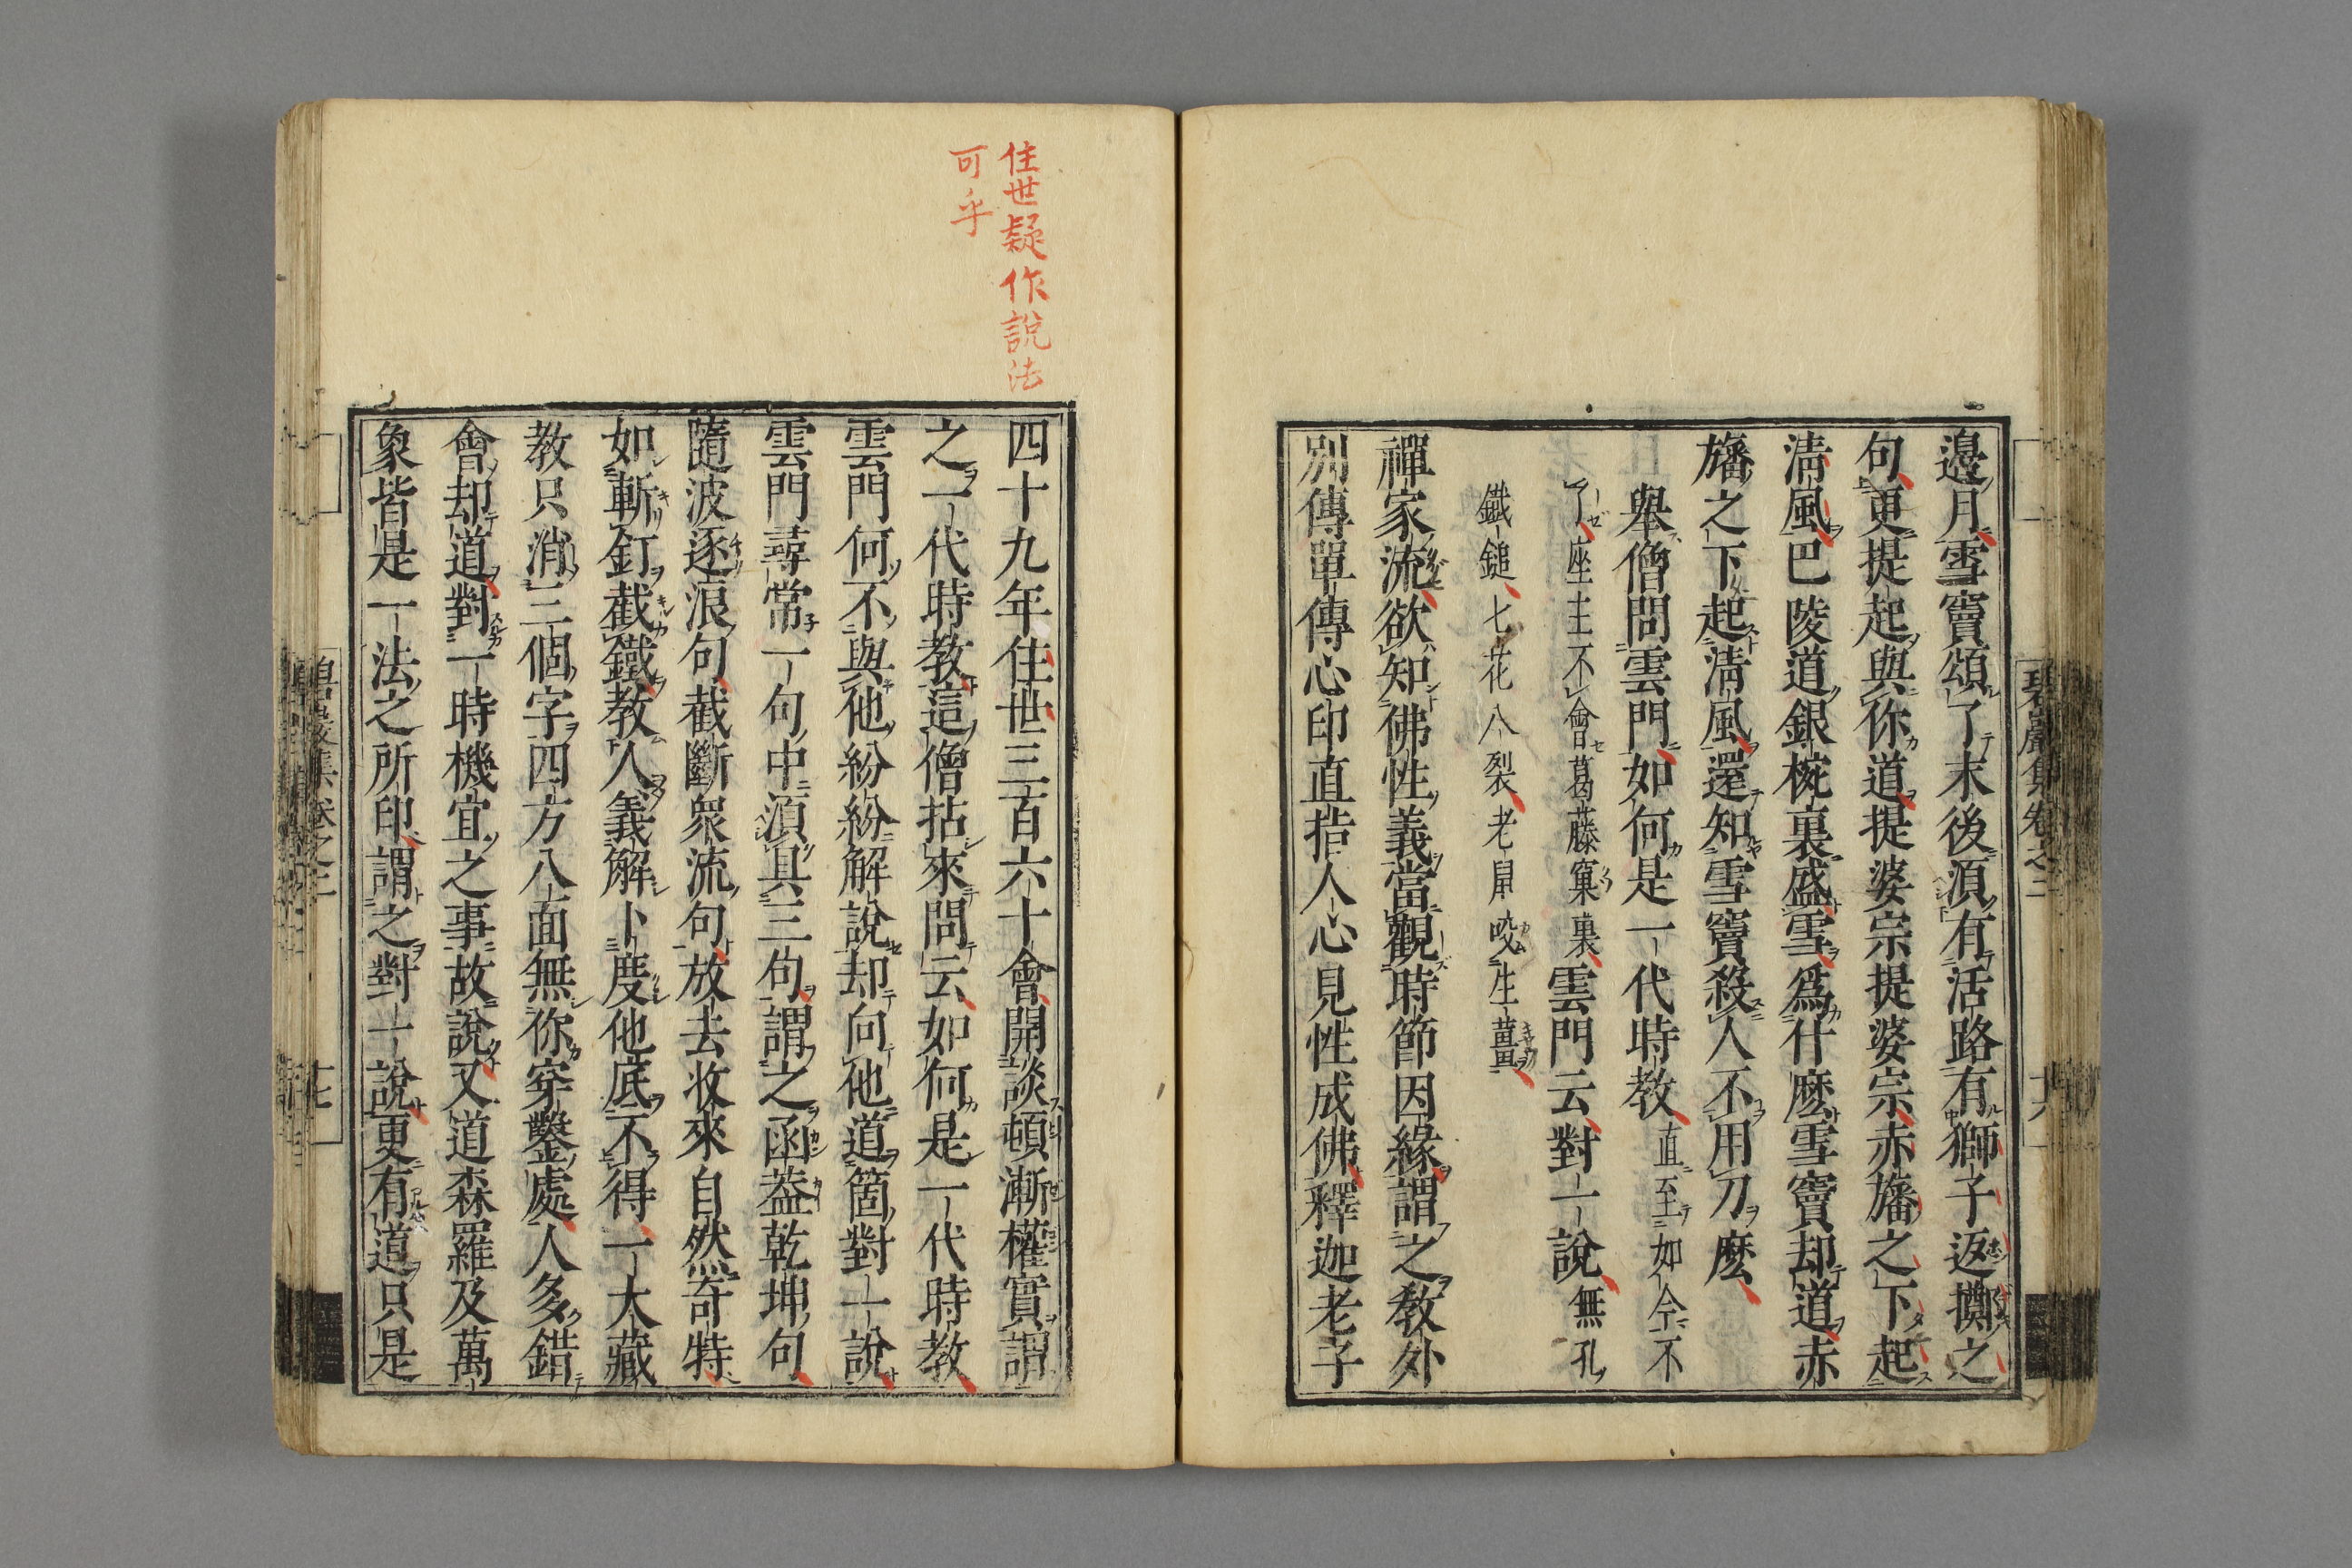 邉月雪竇頌了末後湏有活路有獅子返擲之
句更提起與你道提婆宗提婆宗赤旛之下起
淸風巴陵道銀椀裏盛雪爲什麽雪竇却道赤
旛之下起淸風還知雪竇殺人不用刀麽
舉僧問雲門如何是一代時教直至如今不
了座主不會葛藤窠裏雲門云對一說無孔
鐵鎚七花八裂老鼠咬生薑
禪家流欲知佛性義當觀時節因緣謂之教外
別傳單傳心印直指人心見性成佛釋迦老子
四十九年住世三百六十會開談頓漸權實謂
之一代時教這僧拈來問云如何是一代時教
雲門何不與他紛紛解說却向他道箇對一說
雲門尋常一句中湏具三句謂之函葢乾坤句
隨波逐浪句截斷衆流句放去收來自然奇特
如斬釘截鐵教人義解卜度他底不得一大藏
教只消三個字四方八面無你穿鑿處人多錯
會却道對一時機宜之事故說又道森羅及萬
象皆是一法之所印謂之對一說更有道只是
住世疑作說法
可乎
碧巖集卷之二